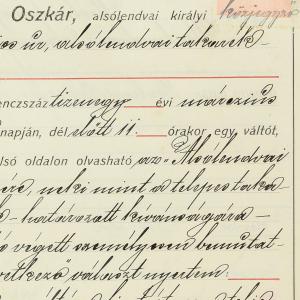 Oszkár, alsólendvai királyi közjegyző
úr, alsólendvai takarék-
enczszáz tizenegy évi márczius
napján, dél előtt 11. órakor egy váltót,
lsó oldalon olvasható az "Alsólendvai
neki mint a telepes taka-
határozott kívánságára
végett személyesen bemutat-
választ nyertem: